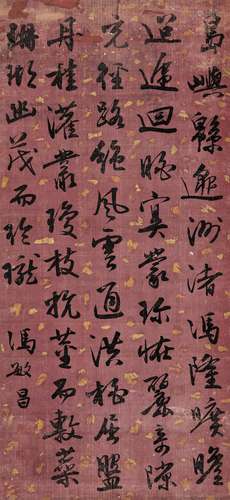 島嶼緜邈洲渚馮隆曠瞻
迢遞回眺冥蒙珍怪麗奇隙
充徑路絕風雲通洪桃屈盤
丹桂灌叢瓊枝抗莖而敷蘂
珊瑚幽茂而玲瓏 馮敏昌